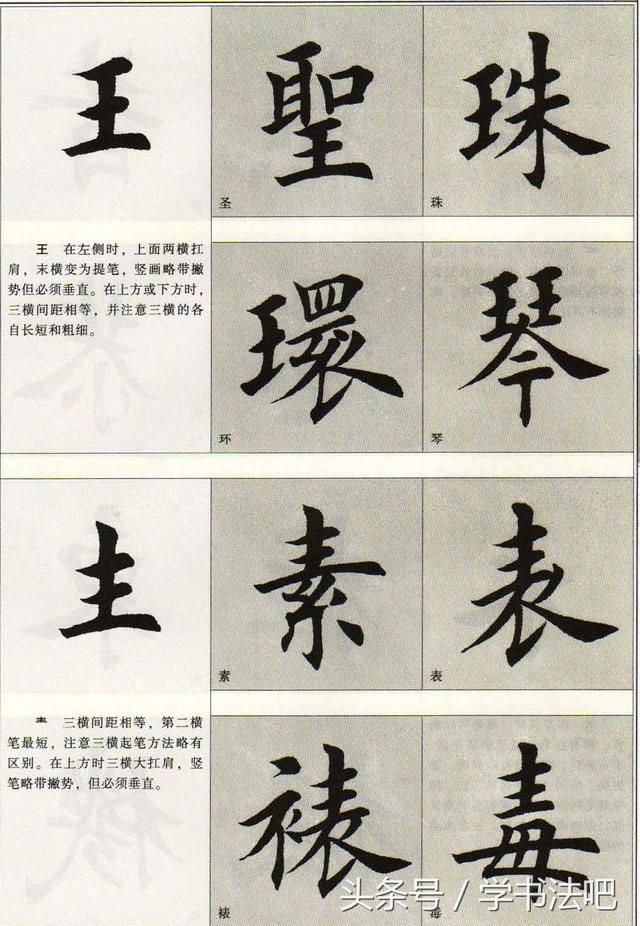 王
聖
珠
圣
珠
王 在左侧时，上面两横扛
肩，末横变为提笔，竖画略带撇
势但必须垂直。在上方或下方时，
三横间距相等，并注意三横的各
自长短和粗细。
環
琴
环
琴
龶
素
表
素
表
龶 三横间距相等，第二横
笔最短，注意三横起笔方法略有
区别。在上方时三横大扛肩，竖
笔略带撇势，但必须垂直。
裱
毒
裱
毒
头条号 / 学书法吧